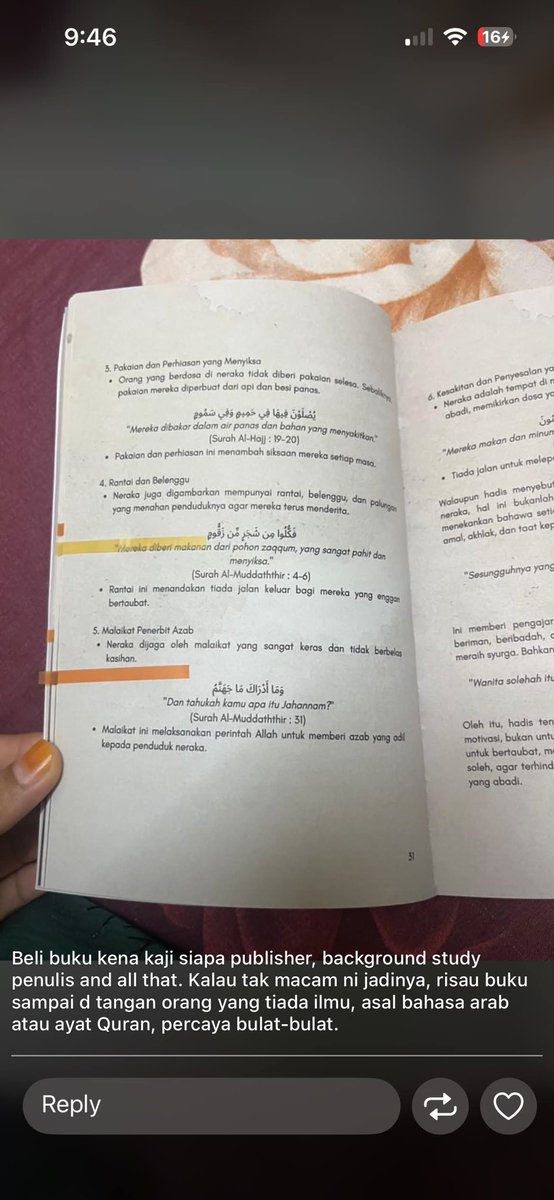 9:46
16
3. Pakaian dan Perhiasan yang Menyiksa
• Orang yang berdosa di neraka tidak diberi pakaian selesa. Sebaliknya,
pakaian mereka diperbuat dari api dan besi panas.
يُصْلَوْنَ فِيهَا فِي حَمِيمٍ وَفِي سَمُومٍ
"Mereka dibakar dalam air panas dan bahan yang menyakitkan."
(Surah Al-Hajj : 19-20)
• Pakaian dan perhiasan ini menambah siksaan mereka setiap masa.
4. Rantai dan Belenggu
• Neraka juga digambarkan mempunyai rantai, belenggu, dan palungan
yang menahan penduduknya agar mereka terus menderita.
فَكُلُوا مِن شَجَرٍ مِّن زَقُّومٍ
"Mereka diberi makanan dari pohon zaqqum, yang sangat pahit dan
menyiksa."
(Surah Al-Muddaththir : 4-6)
• Rantai ini menandakan tiada jalan keluar bagi mereka yang enggan
bertaubat.
5. Malaikat Penerbit Azab
• Neraka dijaga oleh malaikat yang sangat keras dan tidak berbelas
kasihan.
وَمَا أَدْرَاكَ مَا جَهَنَّمُ
"Dan tahukah kamu apa itu Jahannam?"
(Surah Al-Muddaththir : 31)
• Malaikat ini melaksanakan perintah Allah untuk memberi azab yang adil
kepada penduduk neraka.
31
6. Kesakitan dan Penyesalan
• Neraka adalah tempat di
abadi, memikirkan dosa
"Mereka makan dan
• Tiada jalan untuk
Walaupun hadis
neraka, hal ini bukanlah
menekankan bahawa
amal, akhlak, dan taat
"Sesungguhnya yang
Ini memberi
beriman, beribadah,
meraih syurga. Bahkan
"Wanita solehah
Oleh itu, hadis
motivasi, bukan
untuk bertaubat,
soleh, agar
yang abadi.
Beli buku kena kaji siapa publisher, background study
penulis and all that. Kalau tak macam ni jadinya, risau buku
sampai d tangan orang yang tiada ilmu, asal bahasa arab
atau ayat Quran, percaya bulat-bulat.
Reply